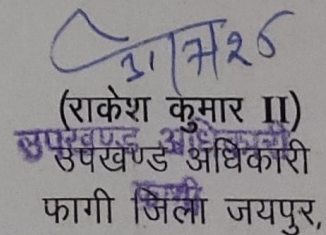 (राकेश कुमार II)
उपखण्ड अधिकारी
उपखण्ड अधिकारी
फागी जिला जयपुर,